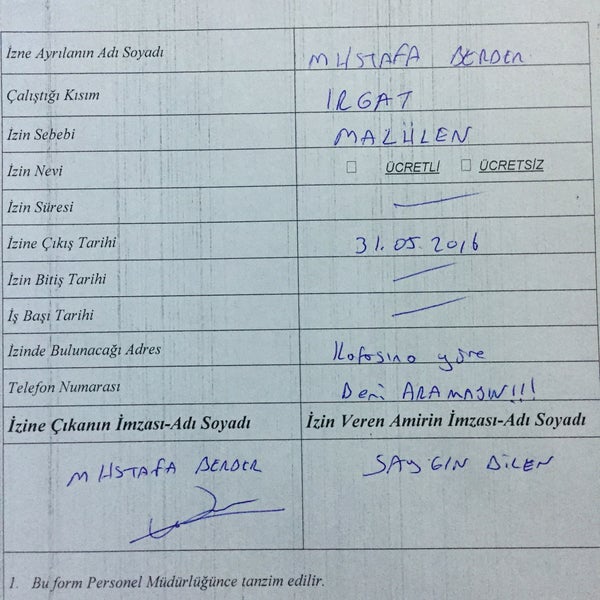 İzne Ayrılanın Adı Soyadı MUSTAFA BERBER
Çalıştığı Kısım IRGAT
İzin Sebebi MALÜLEN
İzin Nevi ☐ ÜCRETLİ ☐ ÜCRETSİZ
İzin Süresi
İzine Çıkış Tarihi 31.05.2016
İzin Bitiş Tarihi
İş Başı Tarihi
İzinde Bulunacağı Adres Kafasına göre
Telefon Numarası Beni ARAMASIN!!!
İzine Çıkanın İmzası-Adı Soyadı İzin Veren Amirin İmzası-Adı Soyadı
MUSTAFA BERBER SAYGIN DİLEN
1. Bu form Personel Müdürlüğünce tanzim edilir.